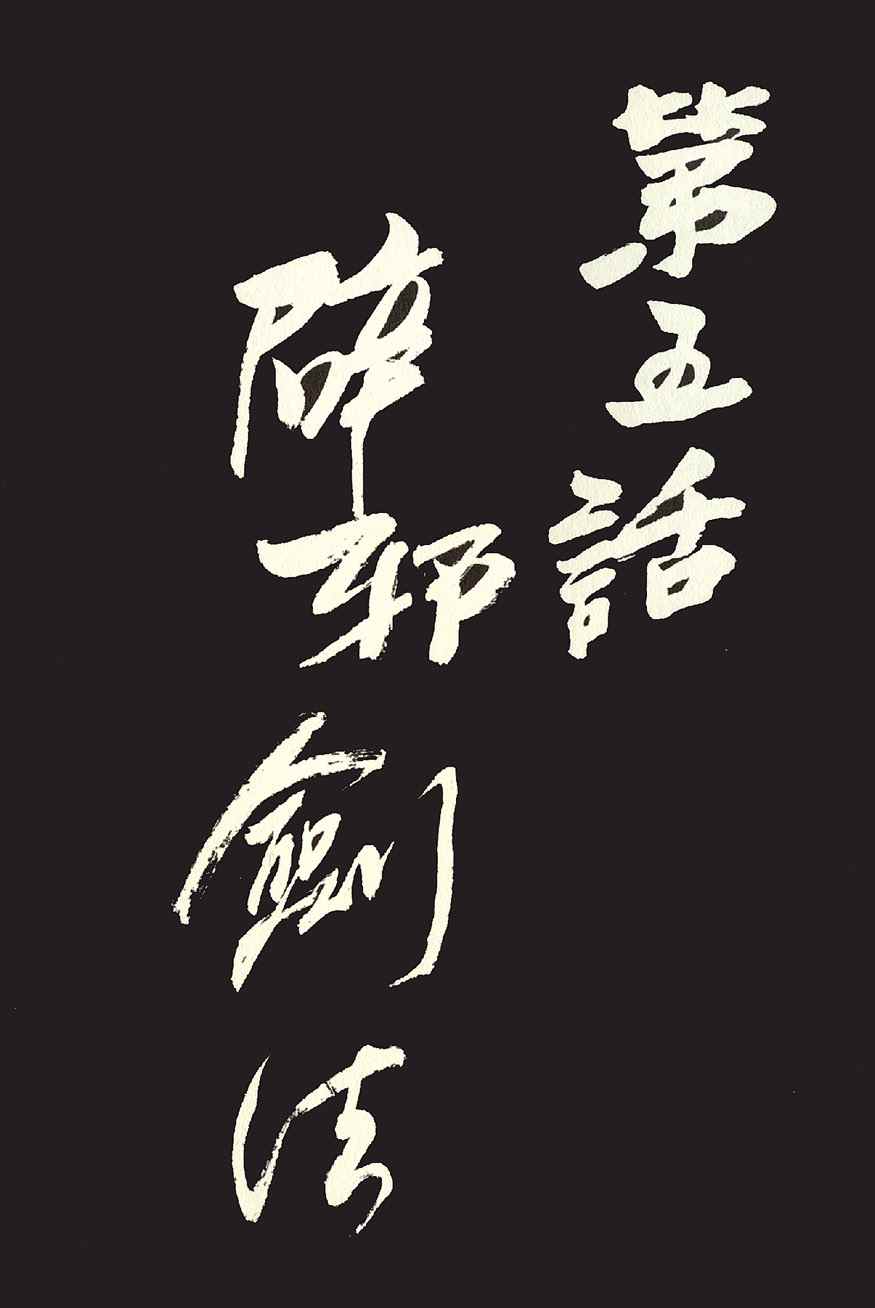 第五話
辟邪劍法